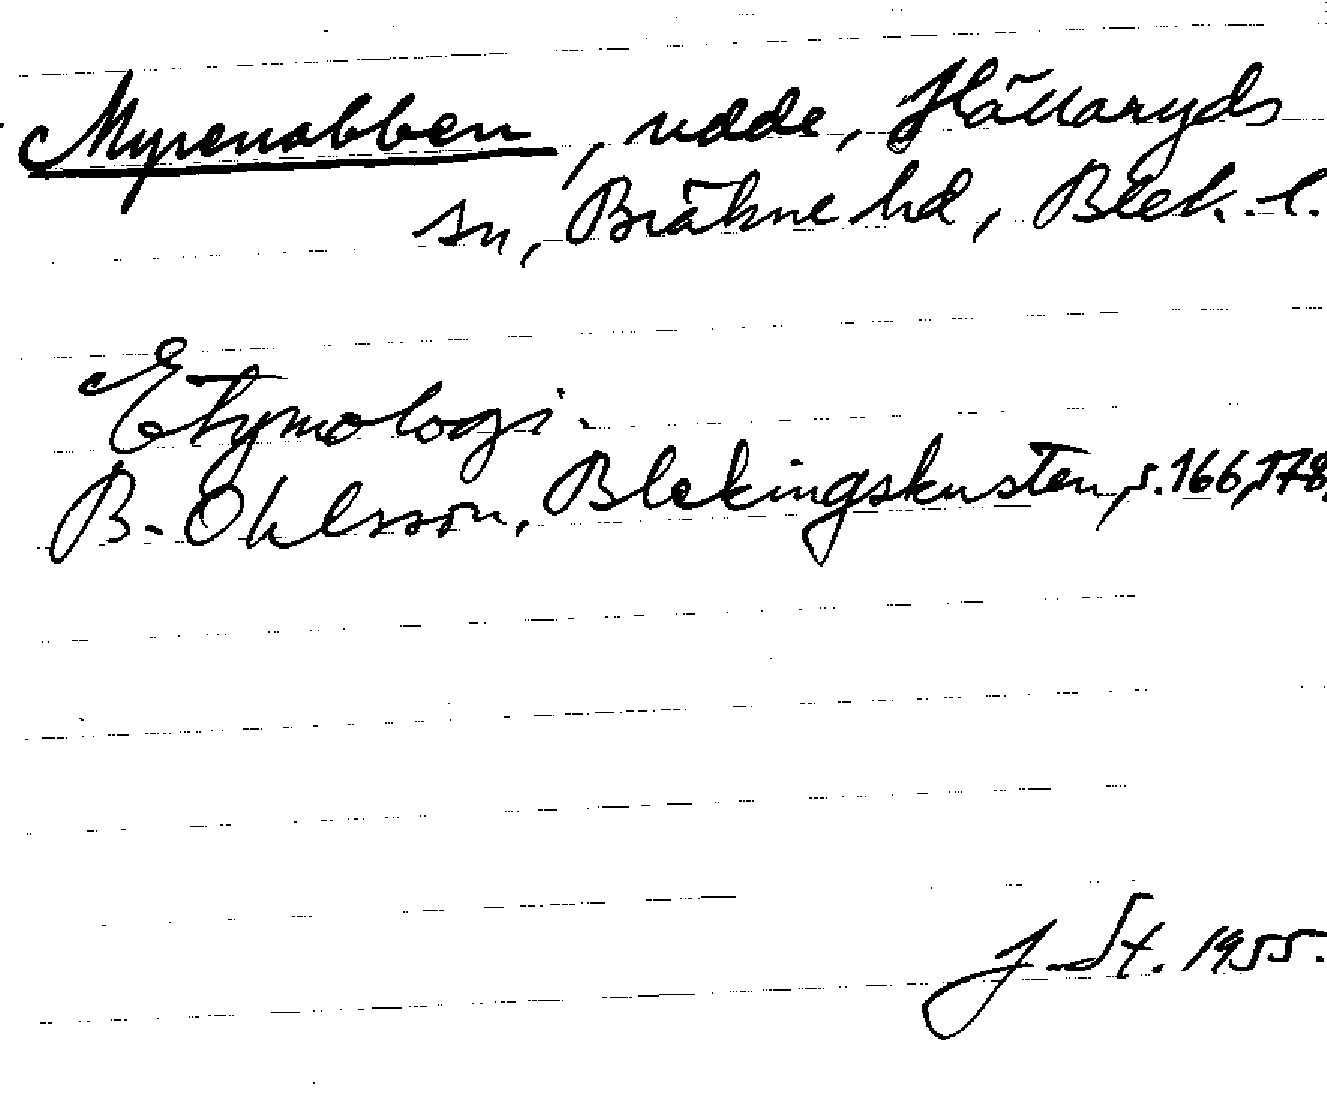 Myrenabben, udde, Hällaryds
sn, Bräkne hd, Blek. l.
Etymologi.
B. Ohlsson, Blekingskusten, s. 166, 178,
J. St. 1955.